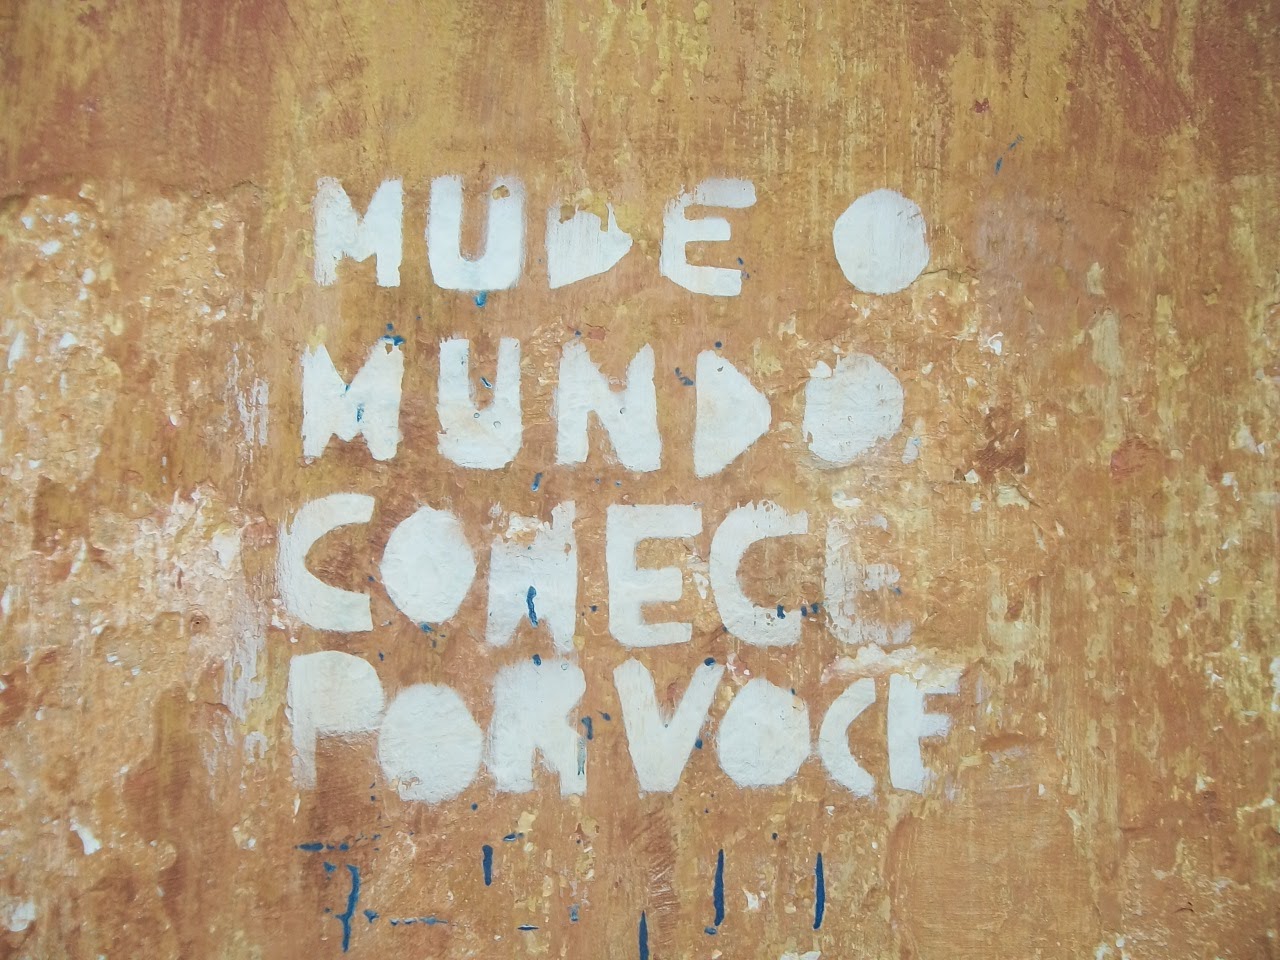 MUDE O
MUNDO
COMECE
POR VOCE